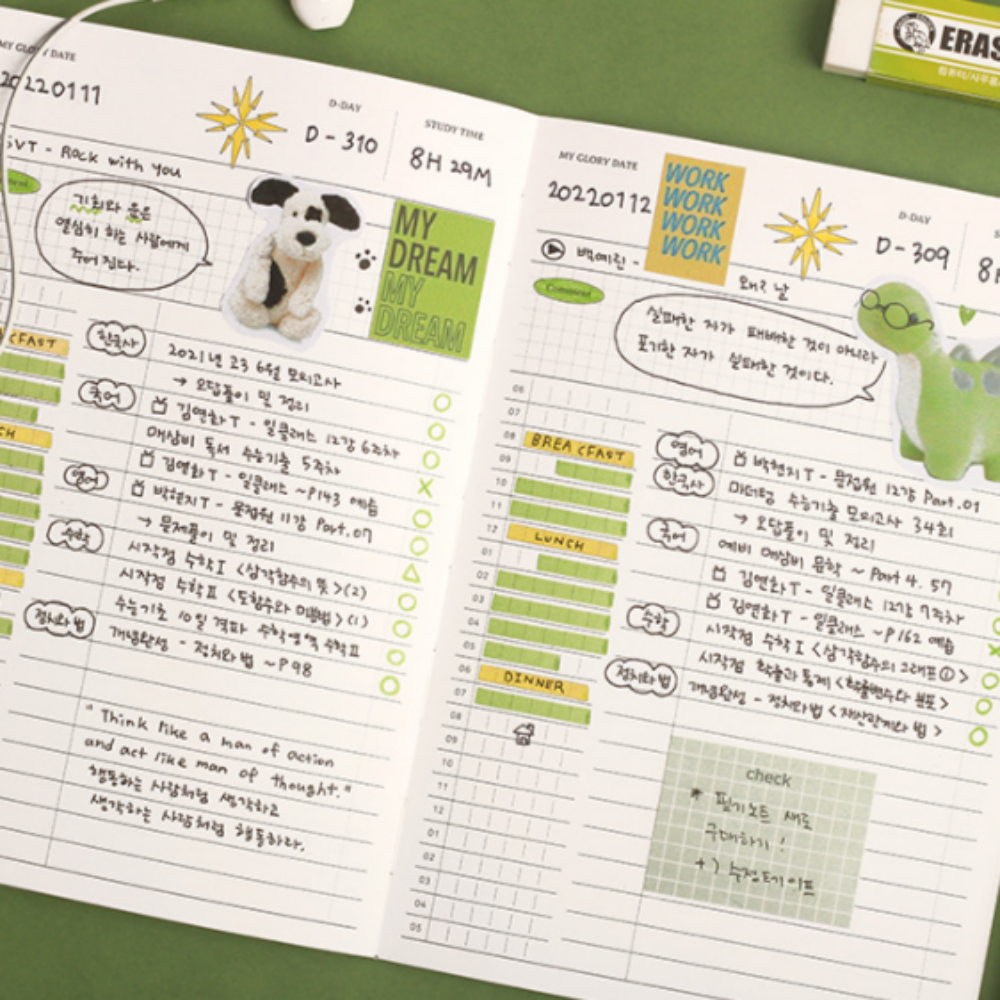 MY GLORY DATE
20220111
D-DAY
D - 310
STUDY TIME
8H 29M
SVT - Rock with you
기회와 운은
열심히 하는 사람에게
주어 진다.
MY
DREAM
MY
DREAM
한국사
2021년 고3 6월 모의고사
→ 오답풀이 및 정리
국어
김연화T - 일클래스 12강 6주차
매삼비 독서 수능기출 5주차
김연화T - 일클래스 ~P143 예습
영어
박현지T - 문접원 11강 Part.07
→ 문제풀이 및 정리
수학
시작점 수학I <삼각함수의 뜻>(2)
시작점 수학II <도함수와 미분법>(1)
수능기초 10일 격파 수학영역 수학II
정치와 법
개념완성 - 정치와법 ~P98
"Think like a man of action
and act like man of thought."
행동하는 사람처럼 생각하고
생각하는 사람처럼 행동하라.
MY GLORY DATE
20220112
WORK
WORK
WORK
WORK
D-DAY
D - 309
8H
백예린 -
Comment
실패한 자가 패배한 것이 아니라
포기한 자가 실패한 것이다.
06
07
08
BREAKFAST
09
10
11
12
LUNCH
01
02
03
04
05
06
DINNER
07
08
09
10
11
12
01
02
03
04
05
영어
박현지T - 문접원 12강 Part.01
한국사
마더텅 수능기출 모의고사 34회
→ 오답풀이 및 정리
국어
예비 매삼비 문학 ~ Part 4. 57
김연화T - 일클래스 12강 7주차
김연화T - 일클래스 ~P162 예습
수학
시작점 수학I <삼각함수의 그래프①>
시작점 확률과 통계 <확률변수와 분포>
정치와 법
개념완성 - 정치와법 <재산관계와 법>
check
* 필기노트 새로
구매하기!
+) 수정테이프
ERAS